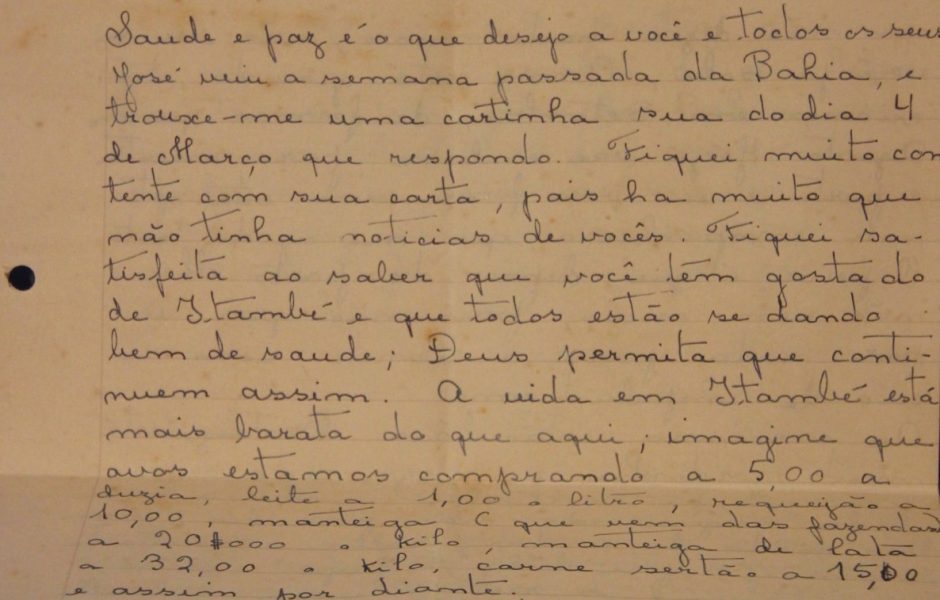 Saude e paz é o que desejo a você e todos os seus
José veiu a semana passada da Bahia, e
trouxe-me uma cartinha sua do dia 4
de Março que respondo. Fiquei muito con
tente com sua carta, pois ha muito que
não tinha noticias de vocês. Fiquei sa-
tisfeita ao saber que você têm gostado
de Itambé e que todos estão se dando
bem de saude; Deus permita que conti-
nuem assim. A vida em Itambé está
mais barata do que aqui; imagine que
ovos estamos comprando a 5,00 a
duzia, leite a 1,00 o litro, requeijão a
10,00, manteiga (que vem das fazendas)
a 20$000 o kilo, manteiga de lata
a 32,00 o kilo, carne sertão a 15,00
e assim por diante.